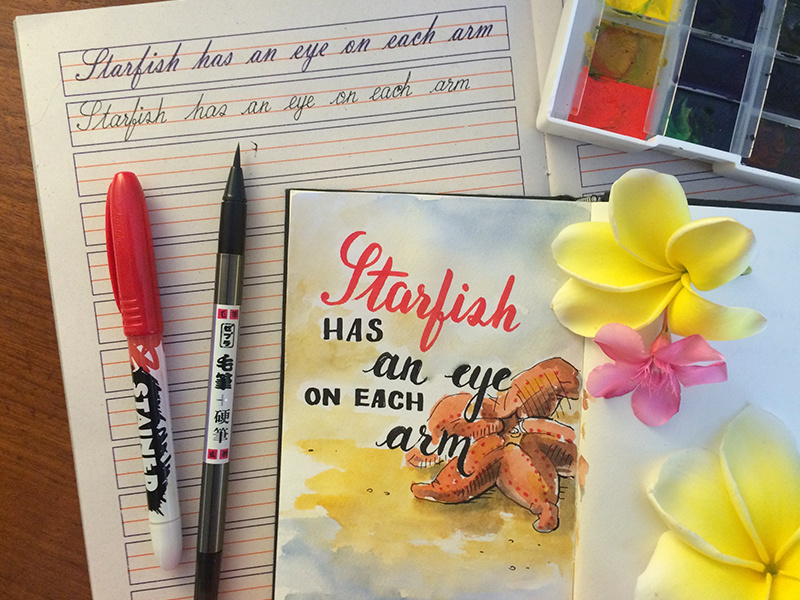 Starfish has an eye on each arm
Starfish has an eye on each arm
STAINED
毛筆+硬筆
Starfish
HAS
an eye
ON EACH
arm